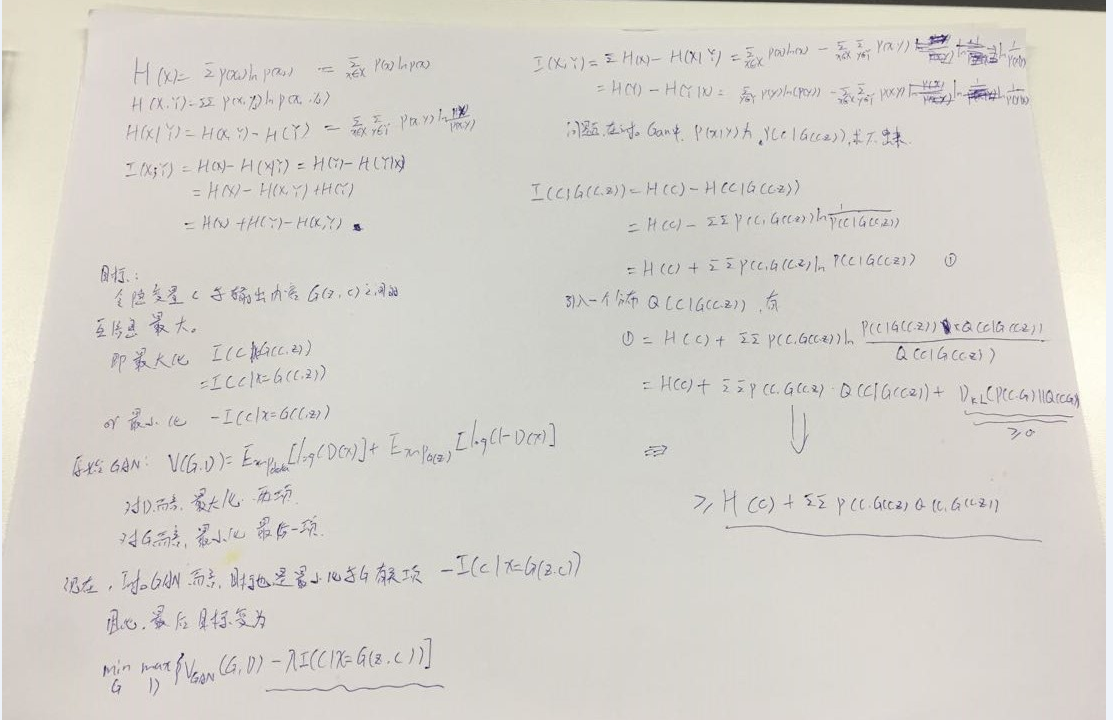 H(X)= Σp(x)ln p(x) = Σ_{x∈X} P(x)lnp(x)
H(X,Y)=ΣΣ p(x,y)ln p(x,y)
H(X|Y)=H(X,Y)-H(Y) = Σ_{x∈X} Σ_{y∈Y} p(x,y)ln
I(X;Y)=H(X)-H(X|Y)=H(Y)-H(Y|X)
=H(X)-H(X,Y)+H(Y)
=H(X)+H(Y)-H(X,Y)
目标:
令隐变量 c 与输出内容 G(z,c)之间的
互信息最大。
即最大化 I(C;G(C,z))
=I(C|x=G(C,z))
or 最小化 -I(C|x=G(C,z))
原始GAN: V(G,D)=E_{x~pdata}[log(D(x)]+E_{x~pG(z)}[log(1-D(x)]
对D而言,最大化 两项.
对G而言,最小化 最后一项.
现在,Info GAN 而言,目标也是最小化与G有关项 -I(c|x=G(z,c))
因此,最后目标变为
min_G max_D {V_GAN(G,D)-λI(C|x=G(z,c))]
I(X;Y)=Σ H(X)-H(X|Y)=Σ_{x∈X} p(x)ln(x) - Σ_{x∈X} Σ_{y∈Y} p(x,y) ln
=H(Y)-H(Y|X)= Σ_{y∈Y} p(y)ln(p(y)) - Σ_{x∈X} Σ_{y∈Y} p(x,y)
问题,在Info Gan中, P(x|y)为 P(C|G(C,z)),求不出来.
I(C;G(C,z))=H(C)-H(C|G(C,z))
=H(C)-ΣΣ P(C,G(C,z))ln 1/P(C|G(C,z))
=H(C)+ΣΣ P(C,G(C,z)ln P(C|G(C,z)) ①
引入一个分布 Q(C|G(C,z)),有
①=H(C)+ΣΣ P(C,G(C,z))ln P(C|G(C,z))×Q(C|G(C,z))/Q(C|G(C,z))
=H(C)+ΣΣ p(C,G(C,z)·Q(C|G(C,z))+D_KL(P(C,G)||Q(C,G))
≥0
⇒
≥ H(C)+ΣΣ P(C,G(C,z) Q(C,G(C,z))